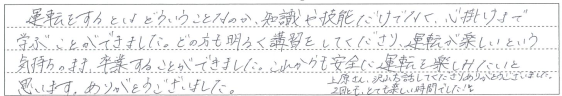 運転をするとはどういうことなのか、知識や技能だけでなく、心掛けまで
学ぶことができました。どの方も明るく講習をしてくださり、運転が楽しいという
気持ちのまま、卒業することができました。これからも安全に運転を楽しみたいと
思います。ありがとうございました。
上原さん、沢山お話してくださりありがとうございました。
2回とも、とても楽しい時間でした!!